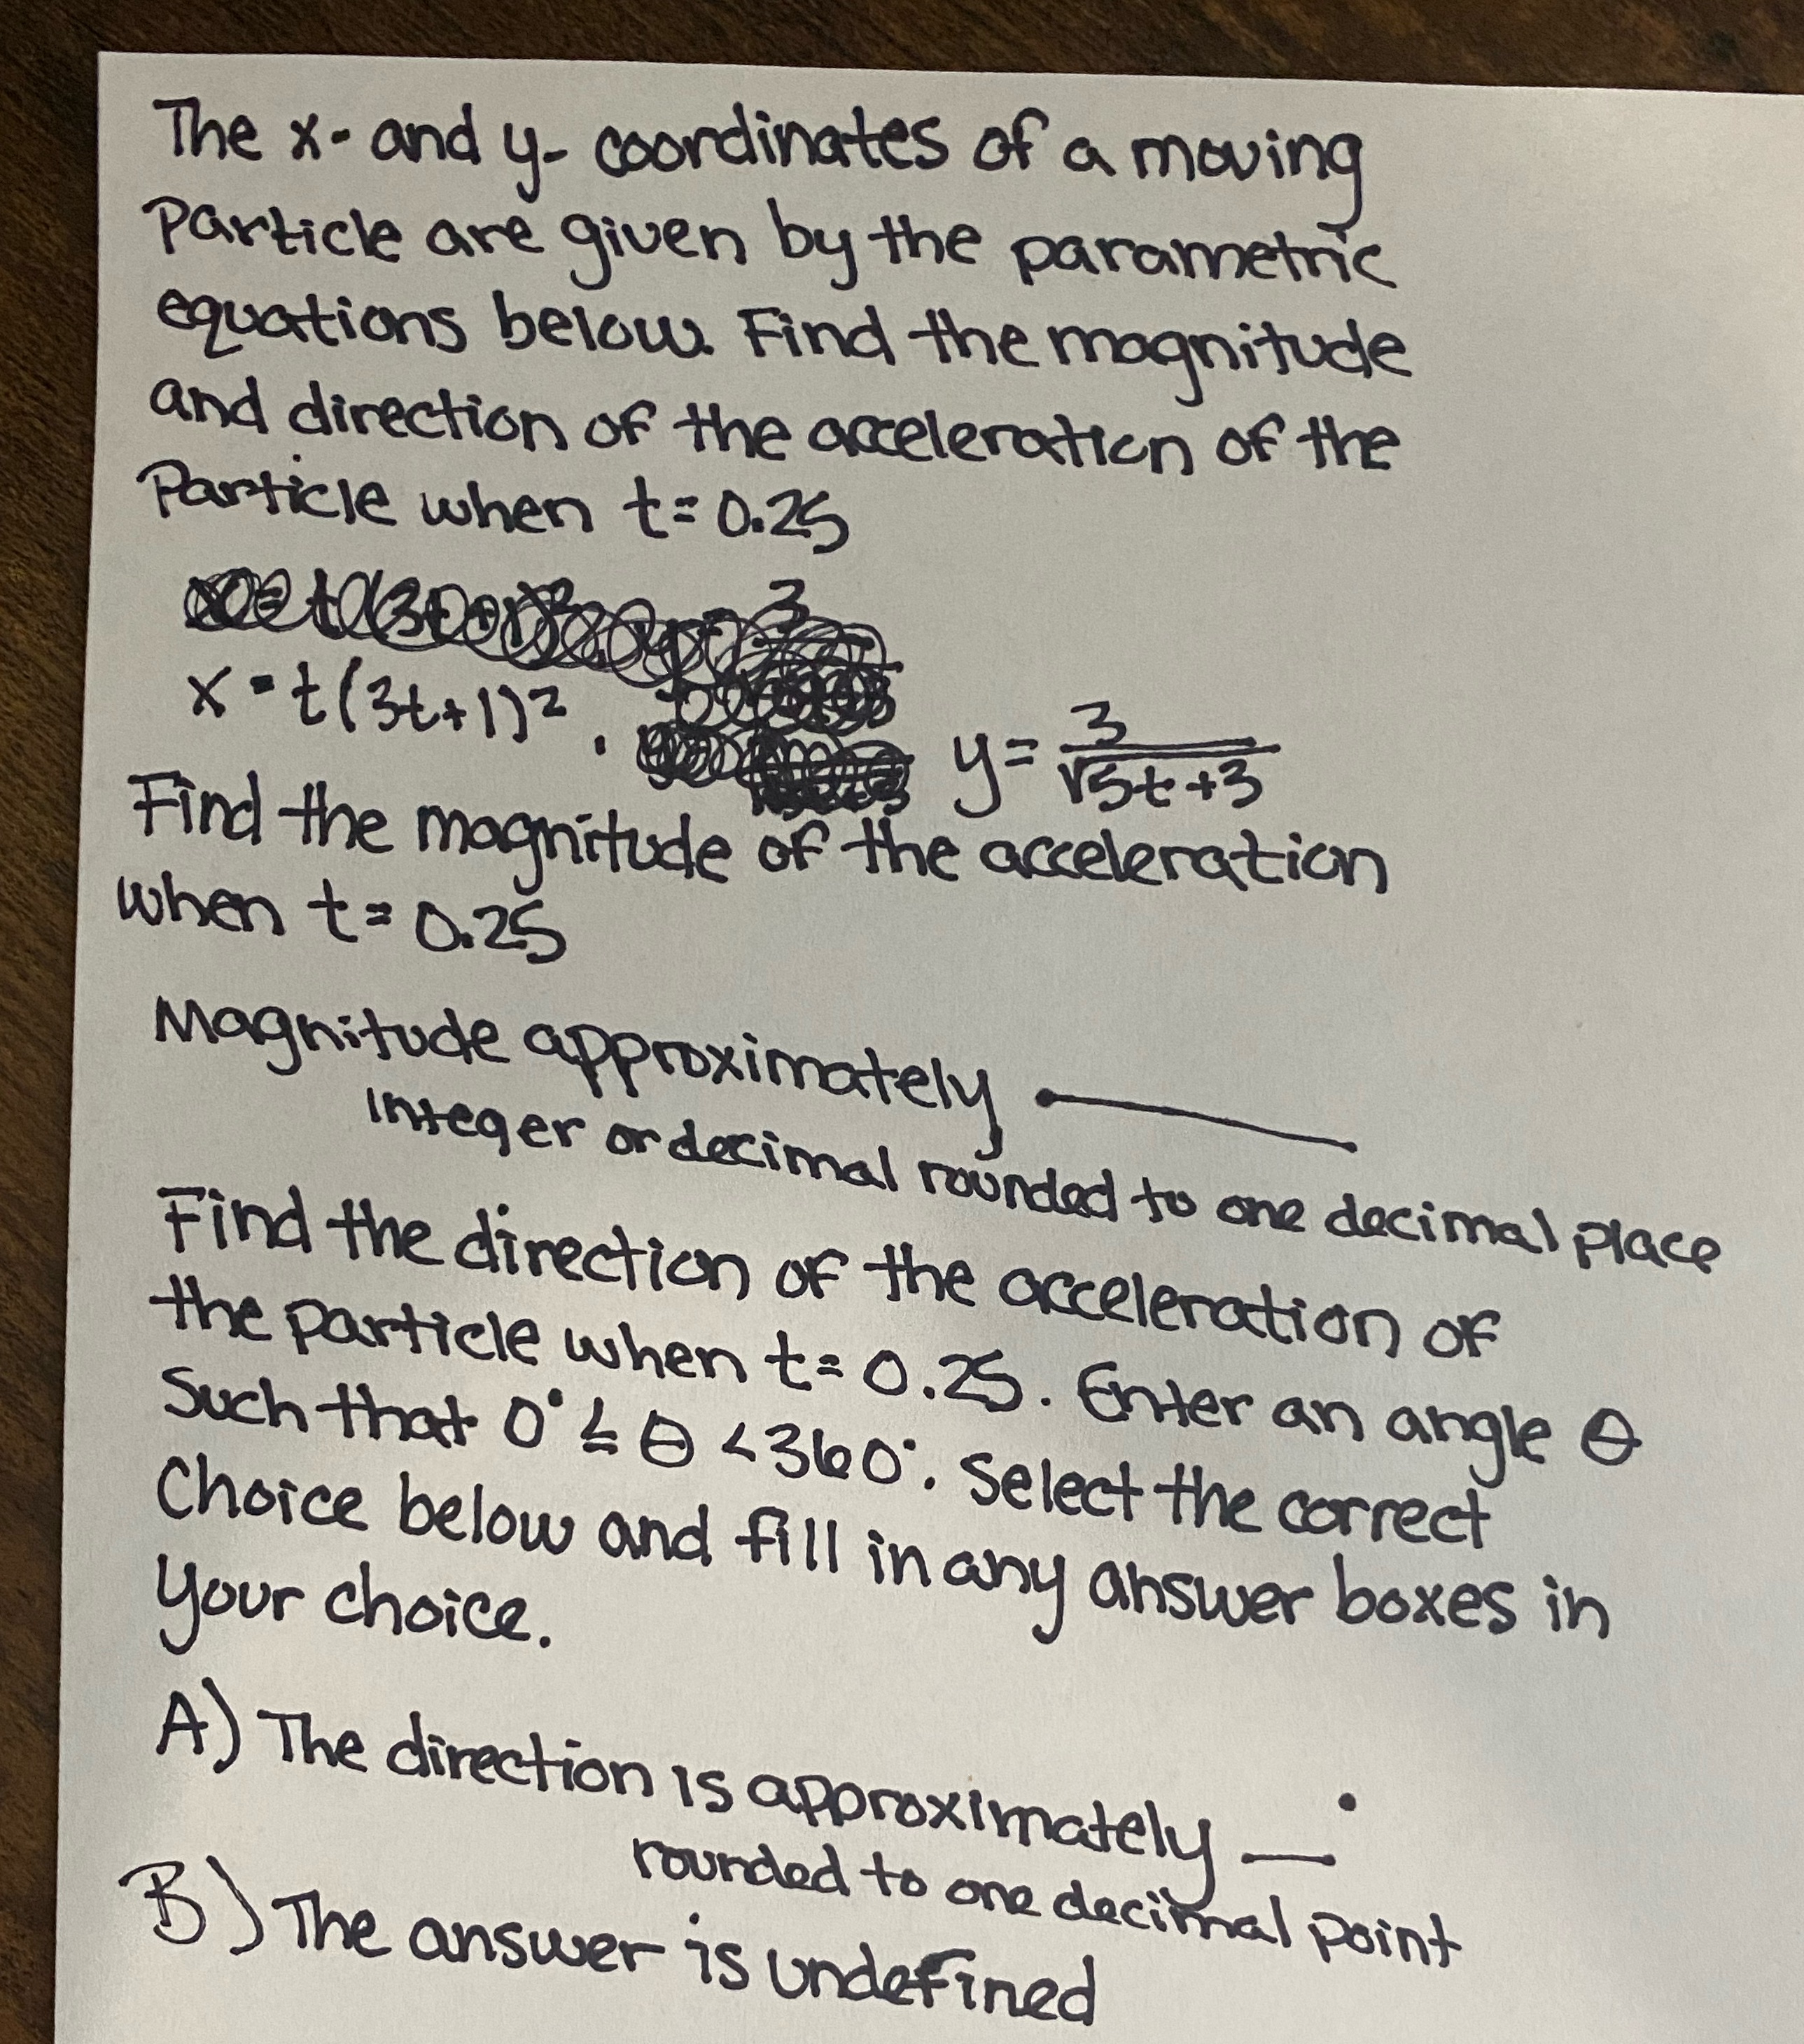 The x- and y- coordinates of a moving
Particle are given by the parametric
equations below. Find the magnitude
and direction of the acceleration of the
Particle when t = 0.25
x = t(3t+1)². y = 3/√5t+3
Find the magnitude of the acceleration
when t = 0.25
Magnitude approximately
Integer or decimal rounded to one decimal place
Find the direction of the acceleration of
the particle when t = 0.25. Enter an angle θ
Such that 0° ≤ θ < 360°. Select the correct
Choice below and fill in any answer boxes in
your choice.
A) The direction is approximately __°
rounded to one decimal point
B) The answer is undefined